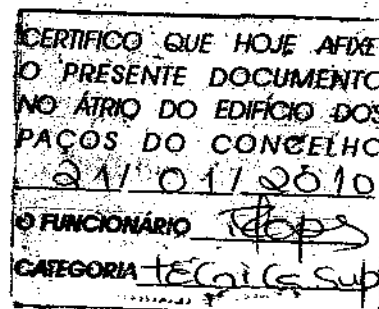 CERTIFICO QUE HOJE AFIXEI
O PRESENTE DOCUMENTO
NO ÁTRIO DO EDIFÍCIO DOS
PAÇOS DO CONCELHO
21/01/2010
O FUNCIONÁRIO
CATEGORIA Técnica Sup